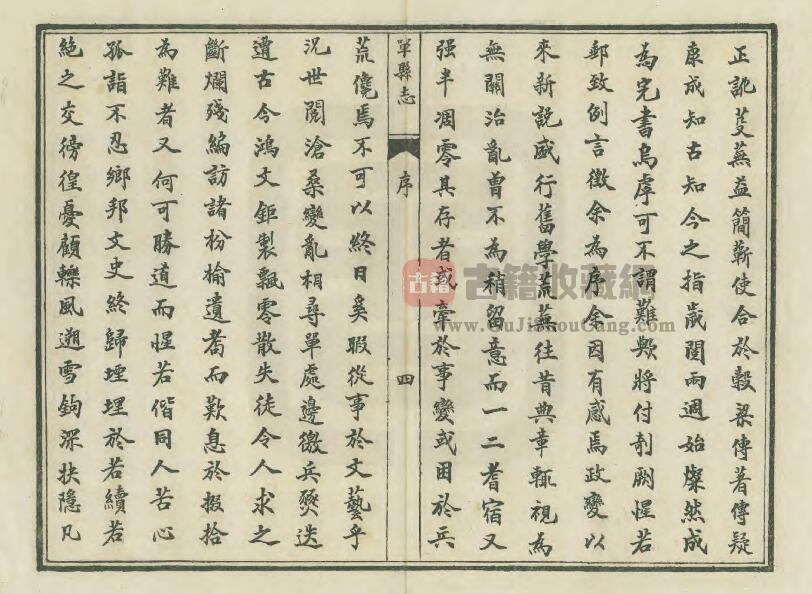 正訛芟蕪益簡蘄使合於穀梁傳著傳疑
康成知古知今之指歲閱兩週始燦然成
為完書烏虖可不謂難歟將付剞劂惺若
郵致例言徵余為序余因有感焉政變以
來新說盛行舊學荒蕪往昔典章輒視為
無關治亂曾不為稍留意而一二耆宿又
强半凋零其存者或牽於事變或困於兵
單縣志
序
四
荒儳焉不可以終日奚暇從事於文藝乎
况世閱滄桑變亂相尋單處邊徼兵燹迭
遭古今鴻文鉅製飄零散失徒令人求之
斷爛殘編訪諸枌榆遺耇而歎息於掇拾
為難者又何可勝道而惺若偕同人苦心
孤詣不忍鄉邦文史終歸堙埋於若續若
絕之交徬徨憂顧轢風遡雪鉤深抉隱凡
古籍
古籍收藏網
www.GuJiShouCang.com